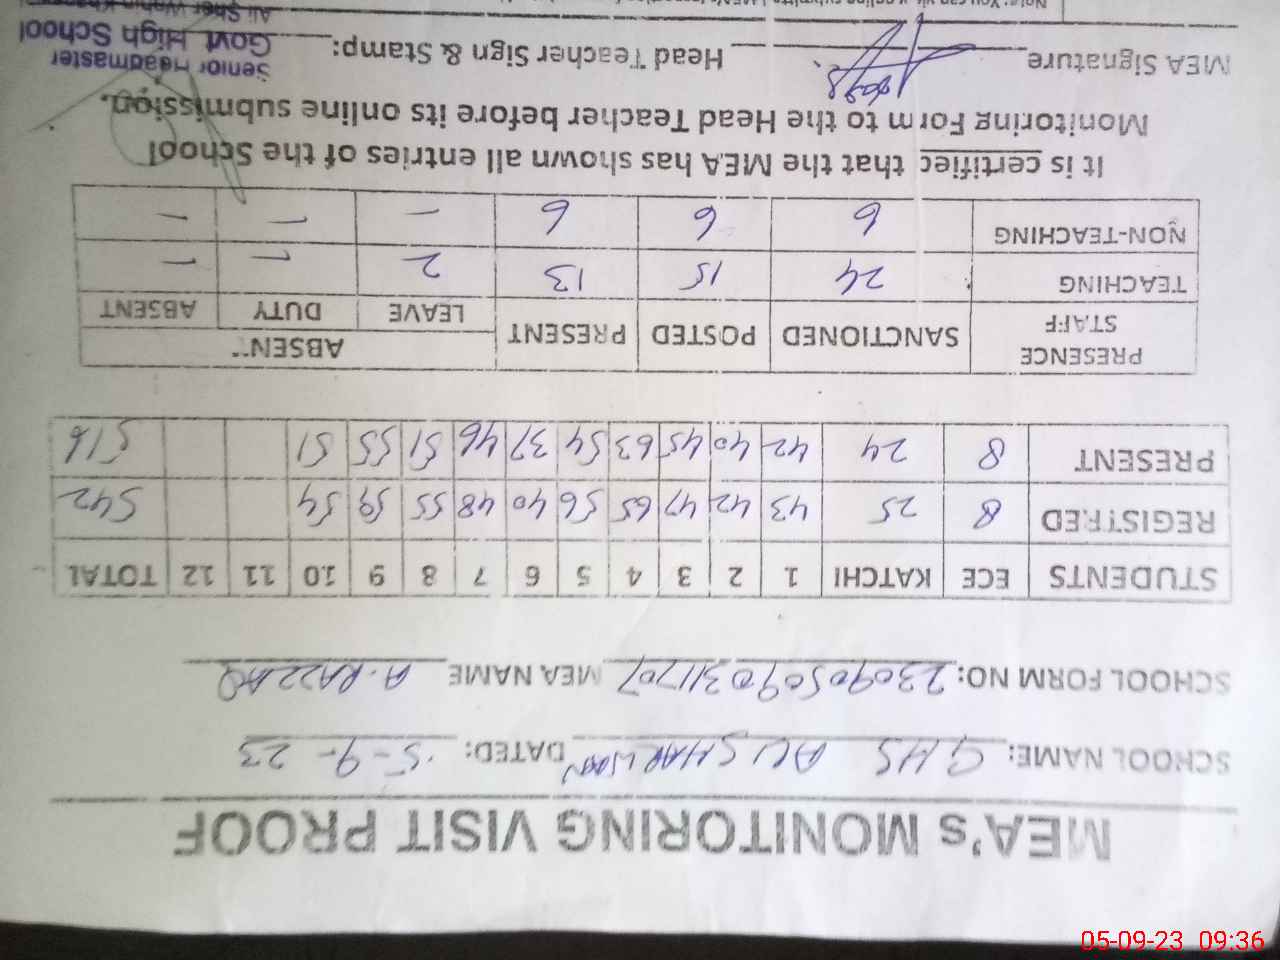 MEA's MONITORING VISIT PROOF
SCHOOL NAME: GHS ALI SHAR WAHN DATED: 5-9-23
SCHOOL FORM NO: 230905090311707 MEA NAME A.RAZZAQ
STUDENTS ECE KATCHI 1 2 3 4 5 6 7 8 9 10 11 12 TOTAL
REGISTRED 8 25 43 42 47 65 56 40 48 55 59 54 542
PRESENT 8 24 42 40 45 63 54 37 46 51 55 51 516
PRESENCE STAFF SANCTIONED POSTED PRESENT ABSENT
LEAVE DUTY ABSENT
TEACHING 24 15 13 2 - -
NON-TEACHING 6 6 6 - - -
It is certified that the MEA has shown all entries of the School
Monitoring Form to the Head Teacher before its online submission.
MEA Signature Head Teacher Sign & Stamp:
Senior Headmaster
Govt High School
05-09-23 09:36